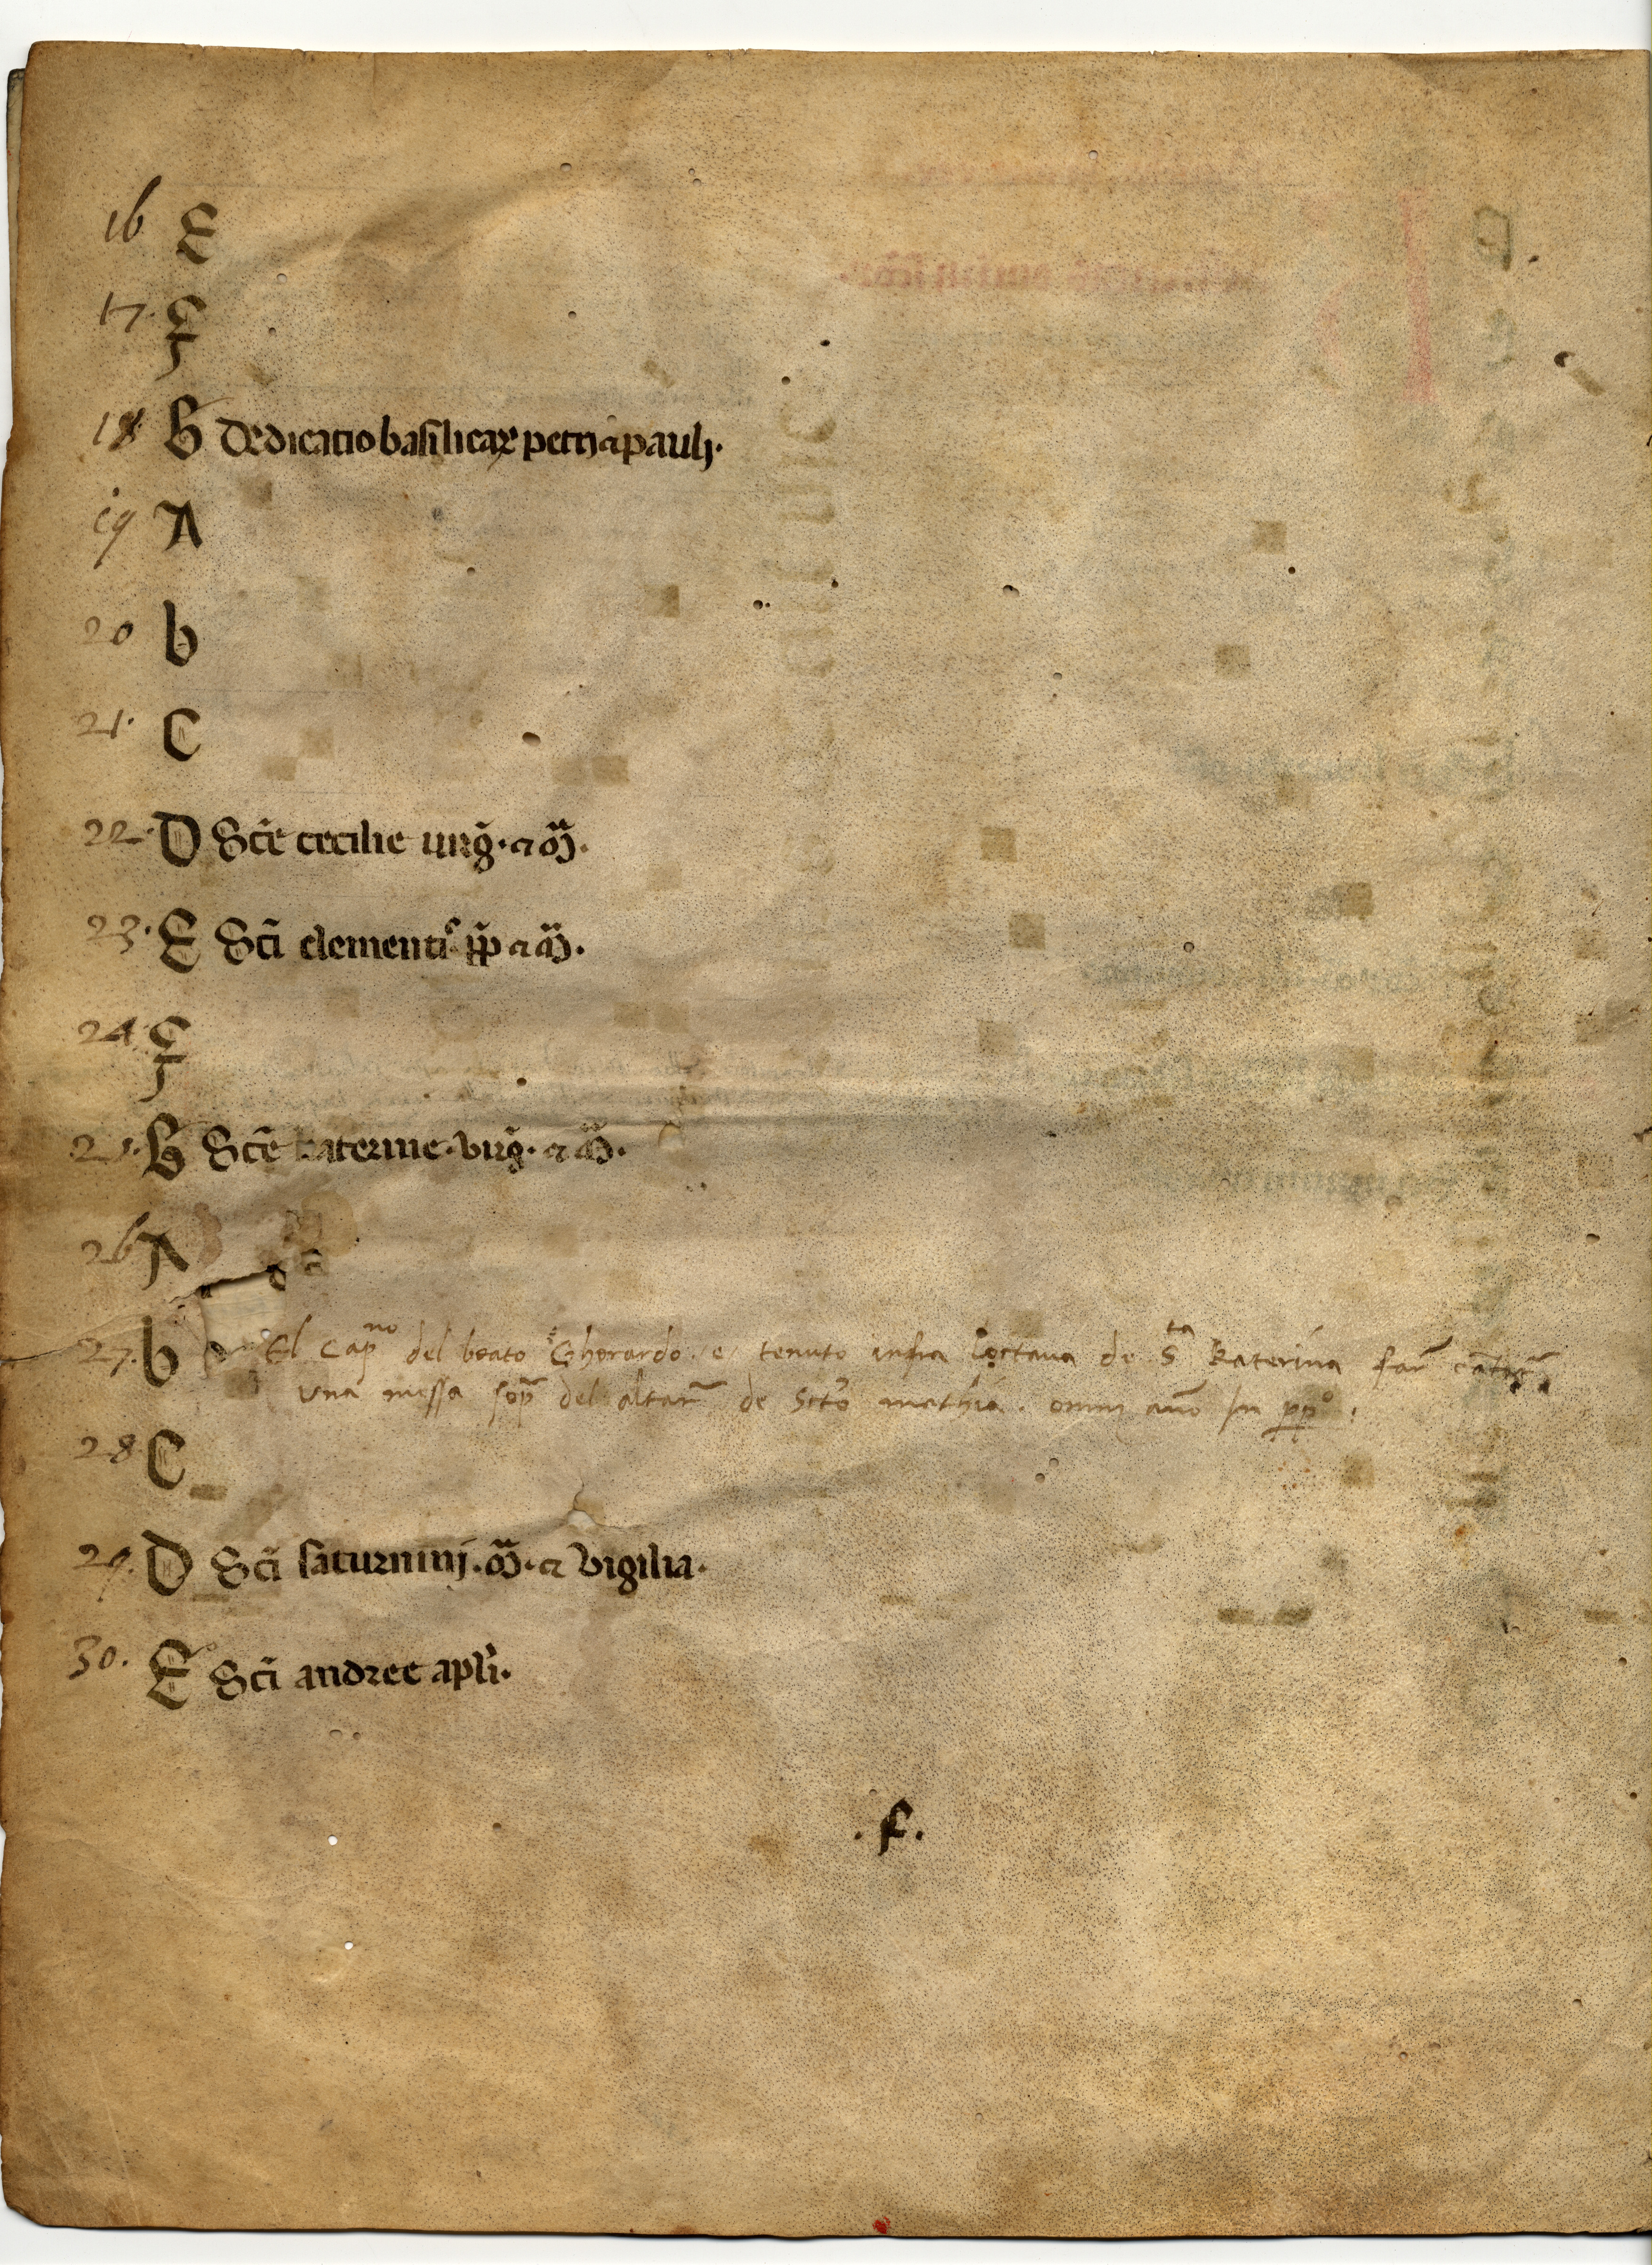 16 E
17. F
18 G Dedicatio basilicaꝝ petri ⁊ pauli.
19 A
20 b
21. C
22. D Sc̄e cecilie uirg̃. ⁊ m̃.
23. E Sc̄i clementis pp̄ ⁊ m̃.
24. F
25. G Sc̄e katerine. virg̃. ⁊ m̃.
26 A
27. b El Capno del beato Ghorardo. e tenuto infra loctaua de Sta Katerina far̃
una messa sop̃ del altar̃ de Scto mathia. omni año In pp̃o.
28. C
29. D Sc̄i saturnini. m̃. ⁊ vigilia.
30. E Sc̄i andree apl̄i.
. f.